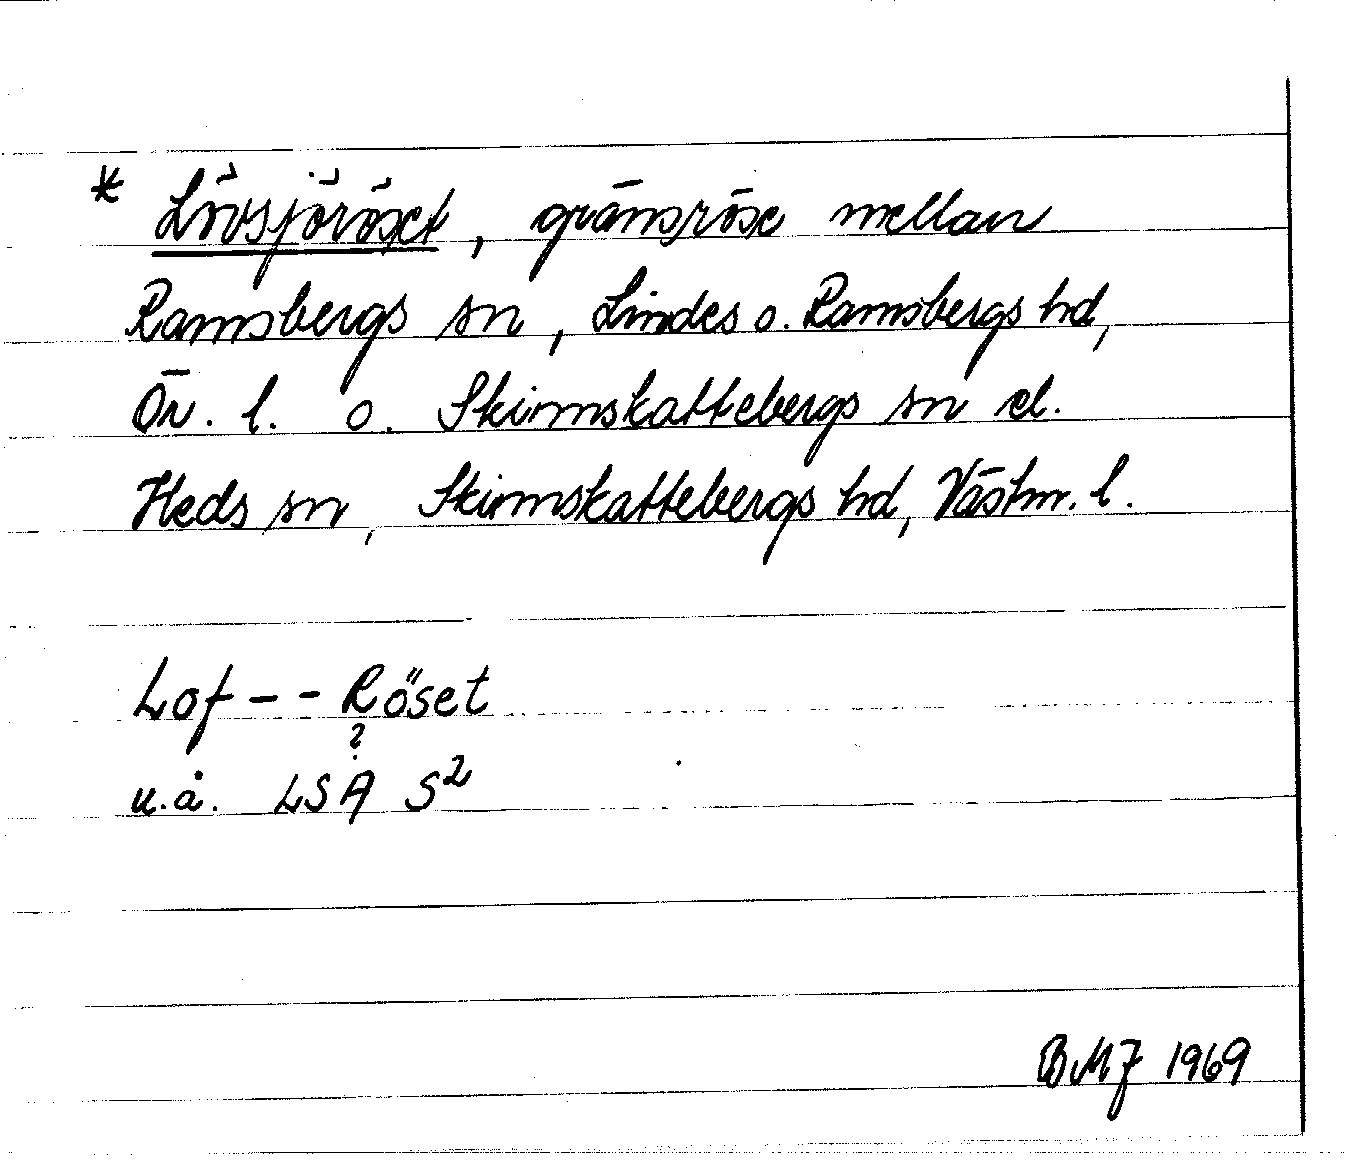 * Lövsjöröset, gränsröse mellan
Ramsbergs sn, Lindes o. Ramsbergs hd,
Ör. l. o. Skinnskattebergs sn el.
Heds sn, Skinnskattebergs hd, Västm. l.
Lof - - Röset
?
u.å. LSA S²
BMJ 1969